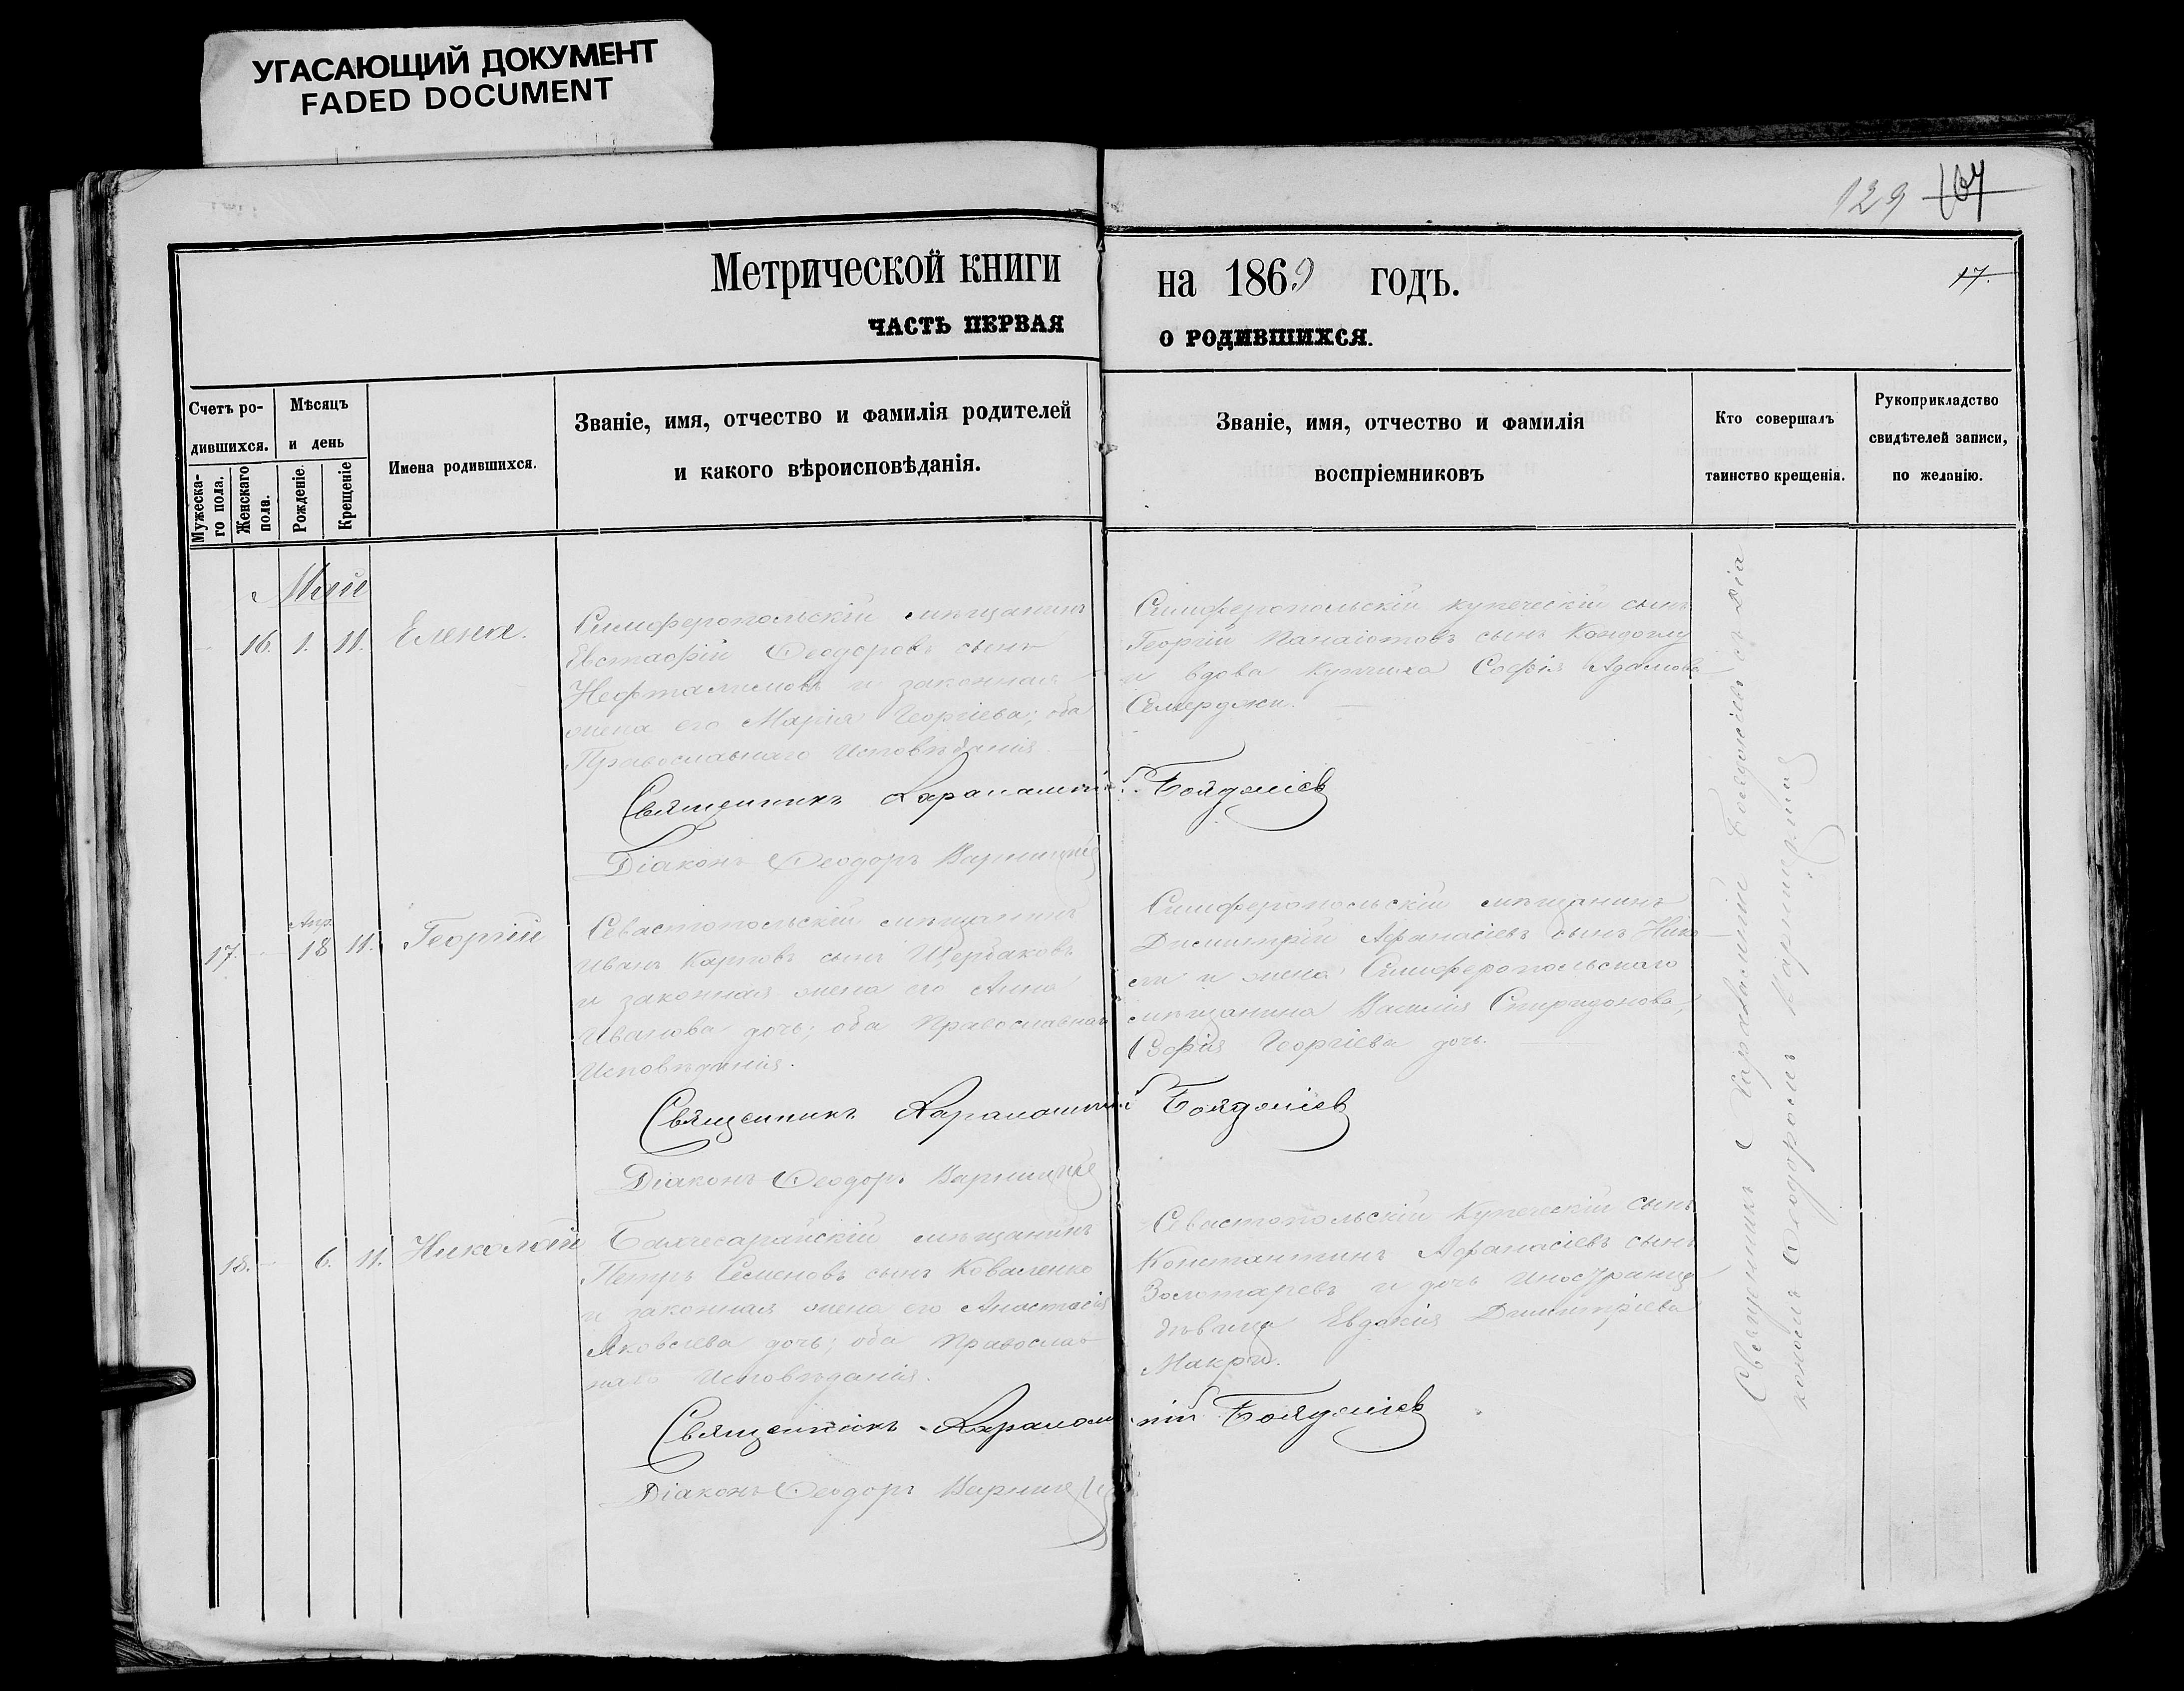 УГАСАЮЩИЙ ДОКУМЕНТ
FADED DOCUMENT
129 107
Метрической книги на 1869 годъ. 17.
ЧАСТЬ ПЕРВАЯ О РОДИВШИХСЯ.
Счетъ ро-
дившихся.
Мужеска-
го пола.
Женскаго
пола.
Мѣсяцъ
и день
Рожденіе.
Крещеніе
Имена родившихся.
Званіе, имя, отчество и фамилія родителей
и какого вѣроисповѣданія.
Званіе, имя, отчество и фамилія
воспріемниковъ
Кто совершалъ
таинство крещенія.
Рукоприкладство
свидѣтелей записи,
по желанію.
Май
16. 1. 11. Елена.
Симферопольскій мѣщанинъ
Евстафій Ѳеодоровъ сынъ
Нефталимовъ и законная
жена его Марія Георгіева; оба
Православнаго Исповѣданія.
Симферопольскій купеческій сынъ
Георгій Панаіотовъ сынъ
и вдова купчиха Софія Адамова
Семерджи.
Священникъ Харалампій Бояджіевъ
Діаконъ Ѳеодоръ Варницкій
Апр.
17. 18 11. Георгій
Севастопольскій мѣщанинъ
Иванъ Карповъ сынъ Щербаковъ
и законная жена его Анна
Иванова дочь; оба Православнаго
Исповѣданія.
Симферопольскій мѣщанинъ
Димитрій Афанасіевъ сынъ
и жена Симферопольскаго
мѣщанина Василія Спиридонова,
Софія Георгіева дочь.
Священникъ Харалампій Бояджіевъ
Діаконъ Ѳеодоръ Варницкій
18. 6. 11. Николай
Бахчесарайскій мѣщанинъ
Петръ Семеновъ сынъ Коваленко
и законная жена его Анастасія
Яковлева дочь; оба Православ-
наго Исповѣданія.
Севастопольскій Купеческій сынъ
Константинъ Афанасіевъ сынъ
Золотаревъ и дочь Иностранца
дѣвица Евдокія Димитріева
Макри.
Священникъ Харалампій Бояджіевъ
Діаконъ Ѳеодоръ Варницкій
Священникъ Харалампій Бояджіевъ съ Діа
кономъ Ѳеодоромъ Варницкимъ